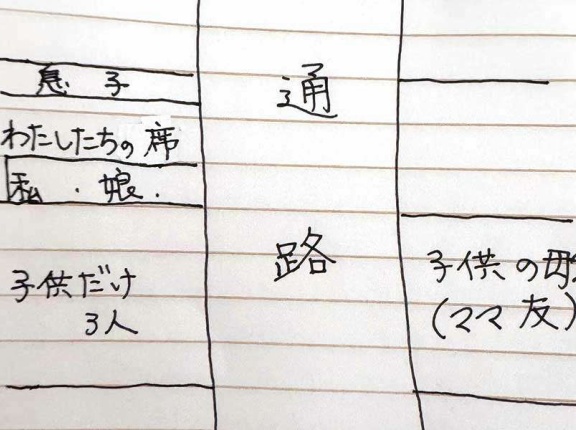 息 子
わたしたちの席
私 ・ 娘.
子供だけ
3人
通
路
子供の母
(ママ友)